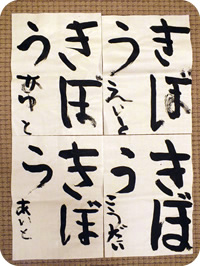 きぼ
う
えいと
きぼ
う
きぼ
う
こうだい
きぼ
う
あいと